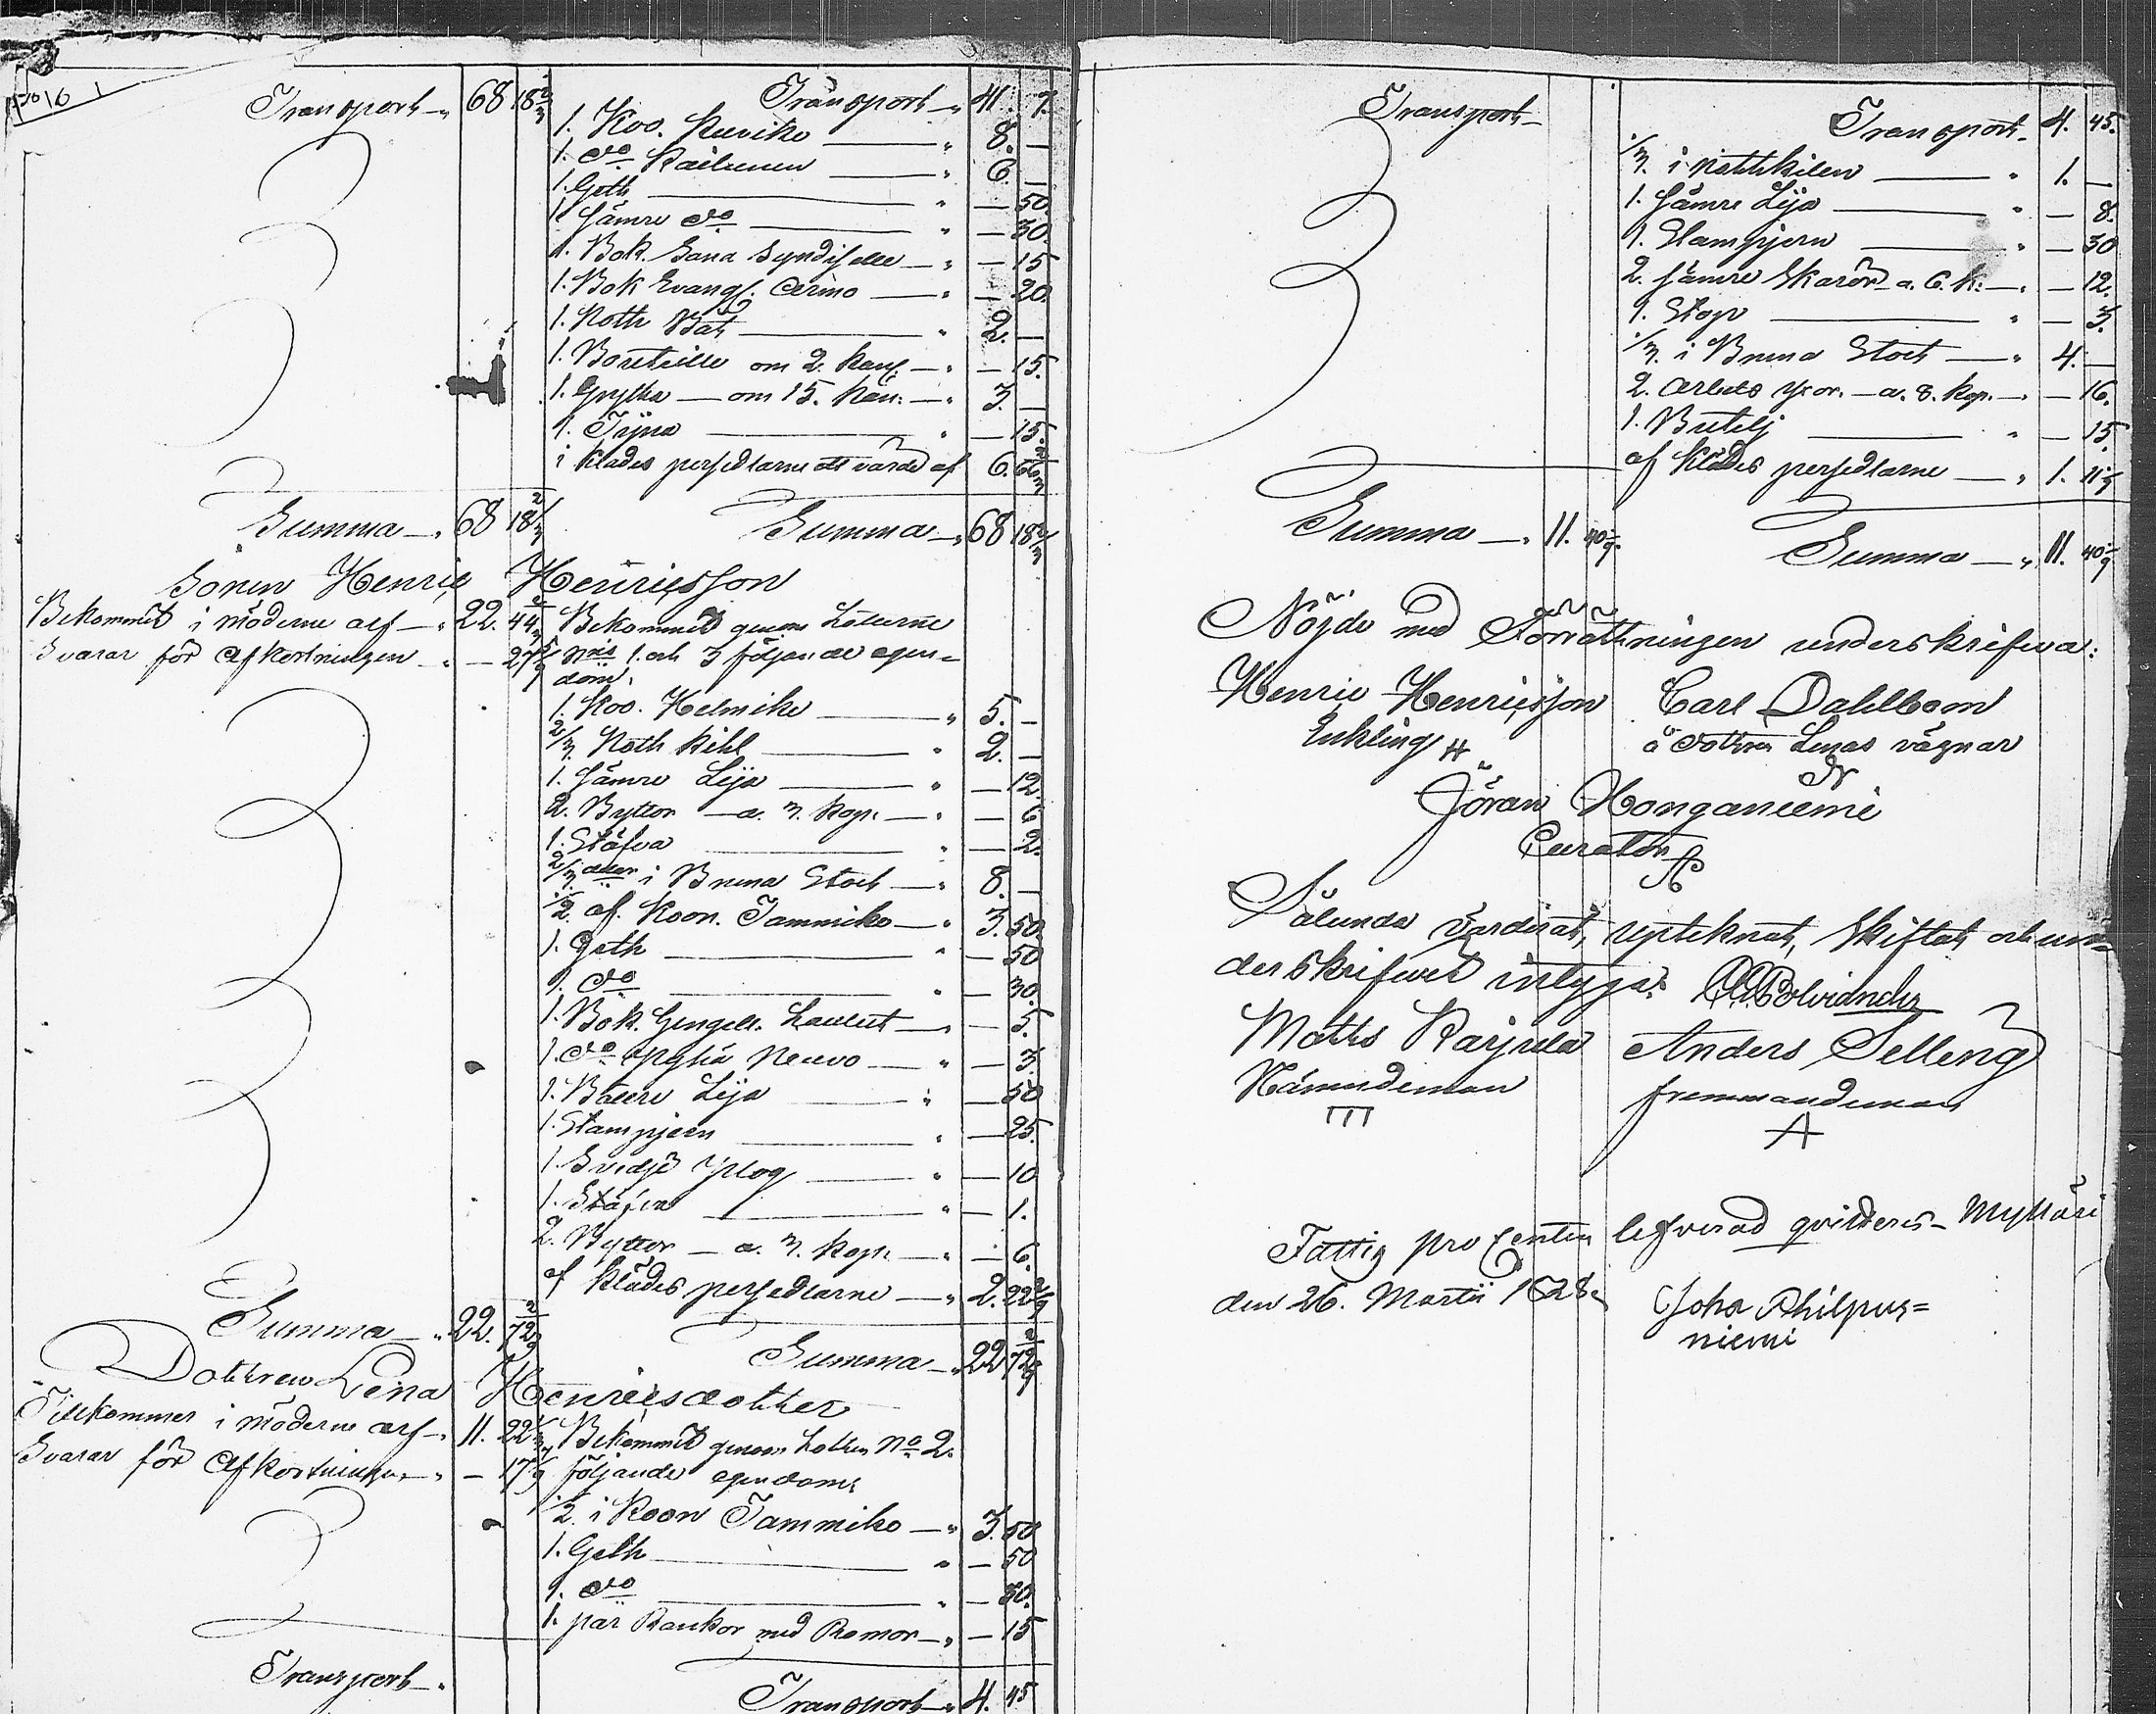 No 16
Transport 68 18 2/3
Transport 41. 7.
1. Koo. 8. —
1. do 6. —
1. Geth — 50.
1. Sämre do — 30.
1. Bok. Sana — 15
1. Bok Evangl. Armo — 20.
1. Noth Båt 2. —
1. Bouteille om 2. Kan. — 15.
1. Gryta om 15. Kan. 3. —
1. Tyna — 15.
i Klädes persedlarne at värde af 6. 66 2/3
Summa 68 18 2/3
Summa 68 18 2/3
Sonen Henric Henricsson
Bekommit i möderne arf 22. 44 2/3
Svarar för Afkortningen — 27 5/9
Bekommit genom Lotterne
Nris 1. och 3 följande egen=
dom.
1. Koo. Helmike 5. —
2/3 Noth 2. —
1. Sämre Lija — 12.
2. Byttor a. 3. kop. — 6
1. Stäfva — 2.
2/3 i Bruna Stoet 8. —
1/2. af. Koon. Tammiko 3. 50.
1. Geth — 50
1. do — 30.
1. Bok. Gengell. Laulut — 5.
1. do Neuvo — 3.
1. Bättre Lija — 50
1. Stampjern — 25.
1. Svedje Plog — 10
1. Stäfva — 1.
2. Byttor a. 3. kop. — 6.
af Klädes persedlarne 2. 22 2/9
Summa 22. 72 2/9
Summa 22 72 2/9
Dottren Lena Henricsdotter
Tillkommer i möderne arf 11. 22 1/3
Svarar för Afkortningen — 17 7/9
Bekommit genom Lotten No 2.
följande egendom
1/2. i Koon Tammiko 3. 50
1. Geth — 50
1. do — 30.
1. par Bankor med Remor — 15
Transport
Transport 4. 45
Transport
Transport 4. 45.
1/3. i 1. —
1. Sämre Lija — 8.
1. Stampjern — 30
2. Sämre Skaror a. 6. k. — 12.
1. Stop — 3.
1/3. i Bruna Stoet 4. —
2. Arbets a. 8. kop. — 16.
1. Butelj — 15
af Klädes persedlarne 1. 11 1/9
Summa 11. 40 1/9
Summa 11. 40 1/9
Nöjde med Förrättningen underskrifwa:
Henric Henricsson Carl Dahlbom
Enkling å dottren Lenas vägnar
Jöran Honganiemi
Curator
Sålunda värderat, upteknat, skiftat och un=
derskrifwet intyga:
Matts Karjula Anders Selleng
Nämndeman fremmandeman
Fattig procenten lefverad qvitteres Mylläri
den 26. Martii 1828 Joha Philpus=
niemi